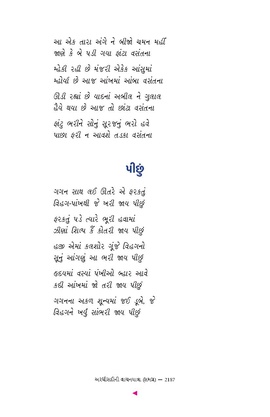 આ એક તારા અંગે ને બીજો ચમન મહીં
જાણે કે બે પડી ગયા ફાંટા વસંતના
મ્હેકી રહી છે મંજરી એકેક આંસુમાં
મ્હોર્યા છે આજ આંખમાં આંબા વસંતના
ઊડી રહ્યાં છે યાદનાં અબીલ ને ગુલાલ
હૈયે થયા છે આજ તો છાંટા વસંતના
ફાંટું ભરીને સોનું સૂરજનું ભરો હવે
પાછા ફરી ન આવશે તડકા વસંતના
પીછું
ગગન સાથ લઈ ઊતરે એ ફરકતું
વિહગ-પાંખથી જે ખરી જાય પીછું
ફરકતું પડે ત્યારે ભૂરી હવામાં
ઝીણાં શિલ્પ કૈં કોતરી જાય પીછું
હજી એમાં કલશોર ગુંજે વિહગનો
સૂનું આંગણું આ ભરી જાય પીછું
હૃદયમાં વસ્યાં પંખીઓ બ્હાર આવે
કદી આંખમાં જો તરી જાય પીછું
ગગનના અકળ શૂન્યમાં જઈ ડૂબે, જે
વિહગને ખર્યું સાંભરી જાય પીછું